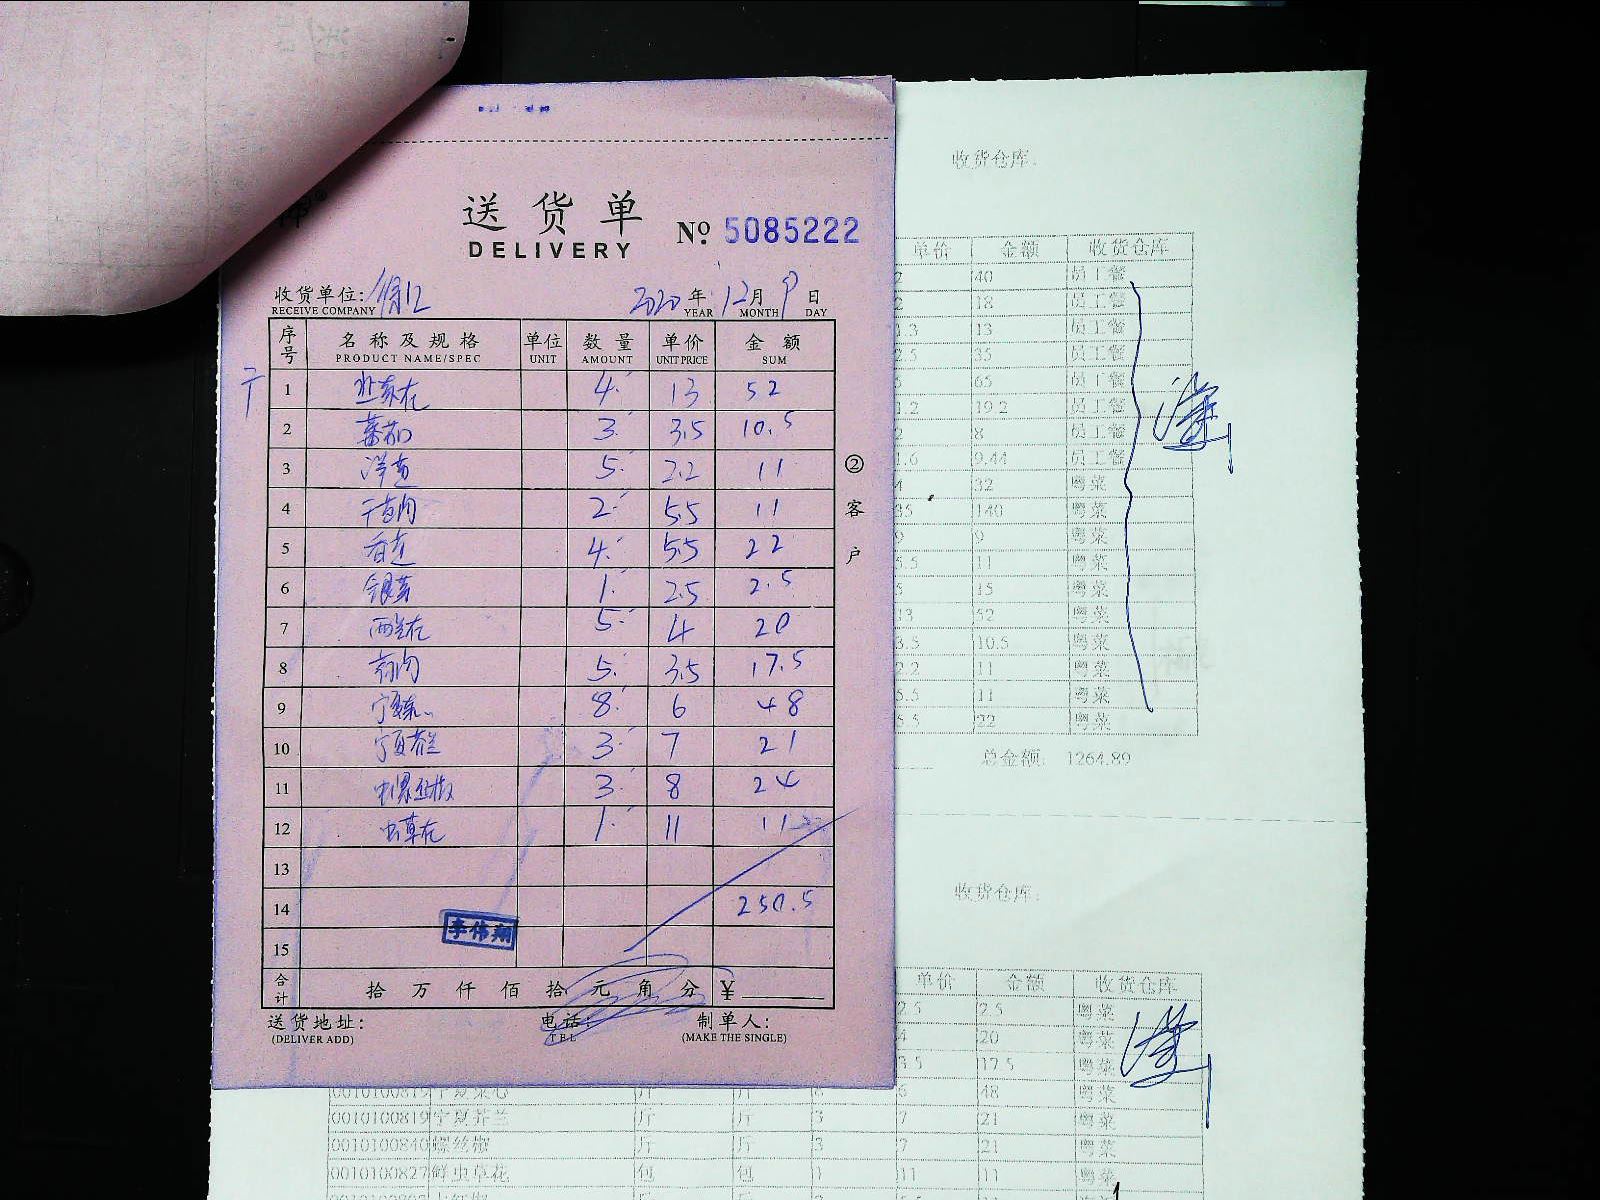 送货单
DELIVERY
No. 5085222
收货单位:
RECEIVE COMPANY
2020 年 12 月 9 日
YEAR MONTH DAY
序号 名称及规格 单位 数量 单价 金额
PRODUCT NAME/SPEC UNIT AMOUNT UNIT PRICE SUM
1 4 13 52
2 蕃茄 3 3.5 10.5
3 洋葱 5 2.2 11
4 2 5.5 11
5 4 5.5 22
6 银芽 1 2.5 2.5
7 西兰花 5 4 20
8 5 3.5 17.5
9 宁夏菜心 8 6 48
10 宁夏芥兰 3 7 21
11 3 8 24
12 虫草花 1 11 11
13
14 250.5
15
李伟翔
合计 拾 万 仟 佰 拾 元 角 分 ¥
送货地址: 电话: 制单人:
(DELIVER ADD) TEL (MAKE THE SINGLE)
②客户
收货仓库:
单价 金额 收货仓库
2 40 员工餐
2 18 员工餐
1.3 13 员工餐
2.5 35 员工餐
5 65 员工餐
1.2 19.2 员工餐
2 8 员工餐
1.6 9.44 员工餐
4 32 粤菜
35 140 粤菜
9 9 粤菜
5.5 11 粤菜
5 15 粤菜
13 52 粤菜
3.5 10.5 粤菜
2.2 11 粤菜
5.5 11 粤菜
5.5 22 粤菜
总金额: 1264.89
收货仓库:
单价 金额 收货仓库
2.5 2.5 粤菜
4 20 粤菜
3.5 17.5 粤菜
0010100819 宁夏菜心 斤 斤 8 6 48 粤菜
0010100819 宁夏芥兰 斤 斤 3 7 21 粤菜
0010100840 螺丝椒 斤 斤 3 7 21 粤菜
0010100827 鲜虫草花 包 包 1 11 11 粤菜